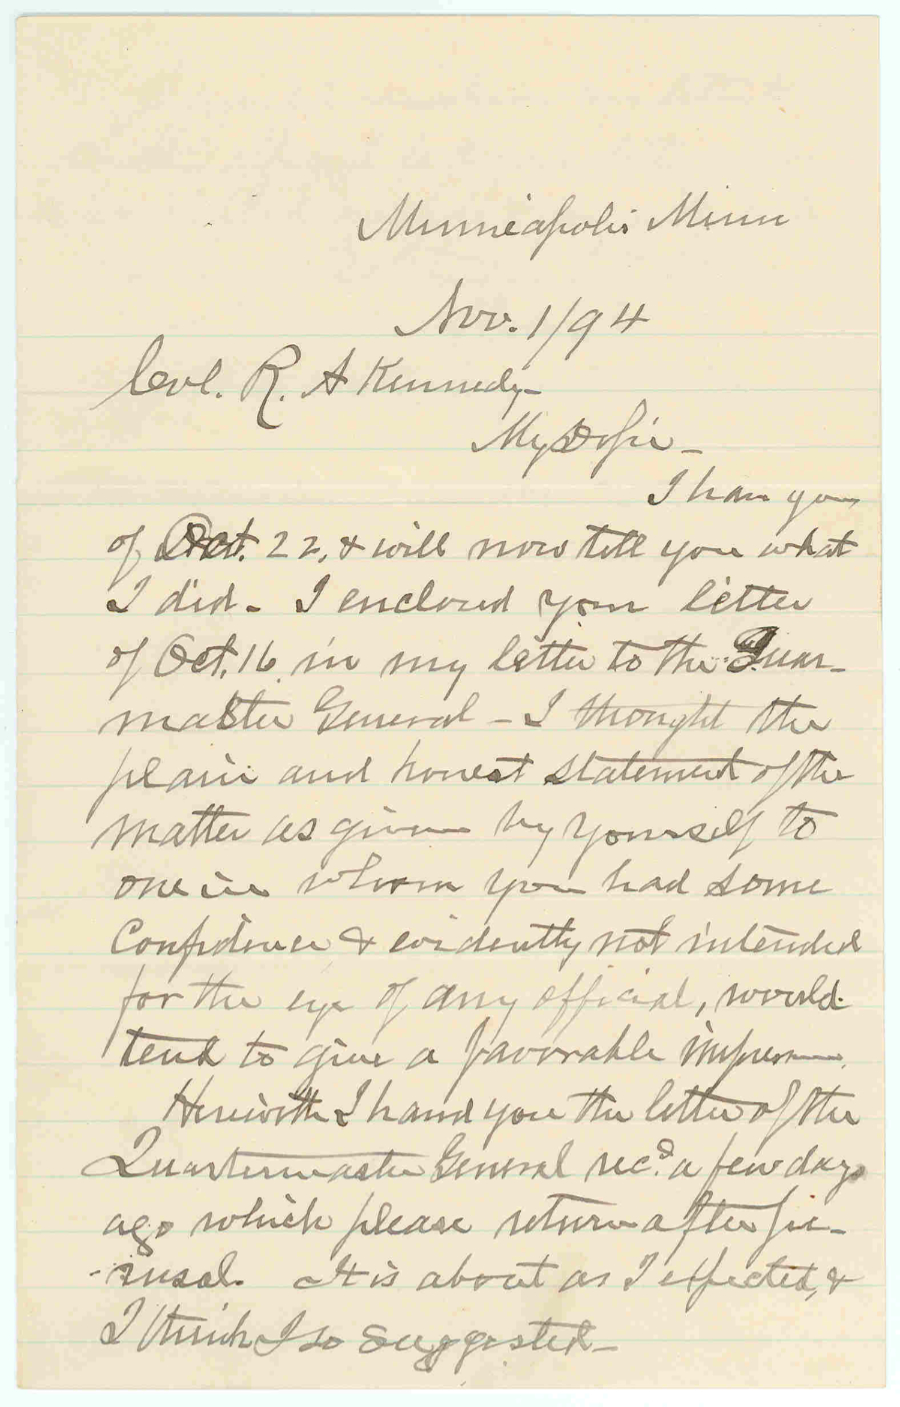 Minneapolis Minn
Nov. 1/94
Col. R. A Kennedy-
My D Sir -
I have yours
of Oct. 22, & will now tell you what
I did - I enclosed your letter
of Oct. 16 in my letter to the Quar-
master General - I thought the
plain and honest statement of the
matter as given by yourself to
one in whom you had some
Confidence & evidently not intended
for the eye of any official, would
tend to give a favorable impression.
Herewith I hand you the letter of the
Quartermaster General recd. a few days
ago which please return after pe-
-rusal. It is about as I expected, &
I think I so suggested -